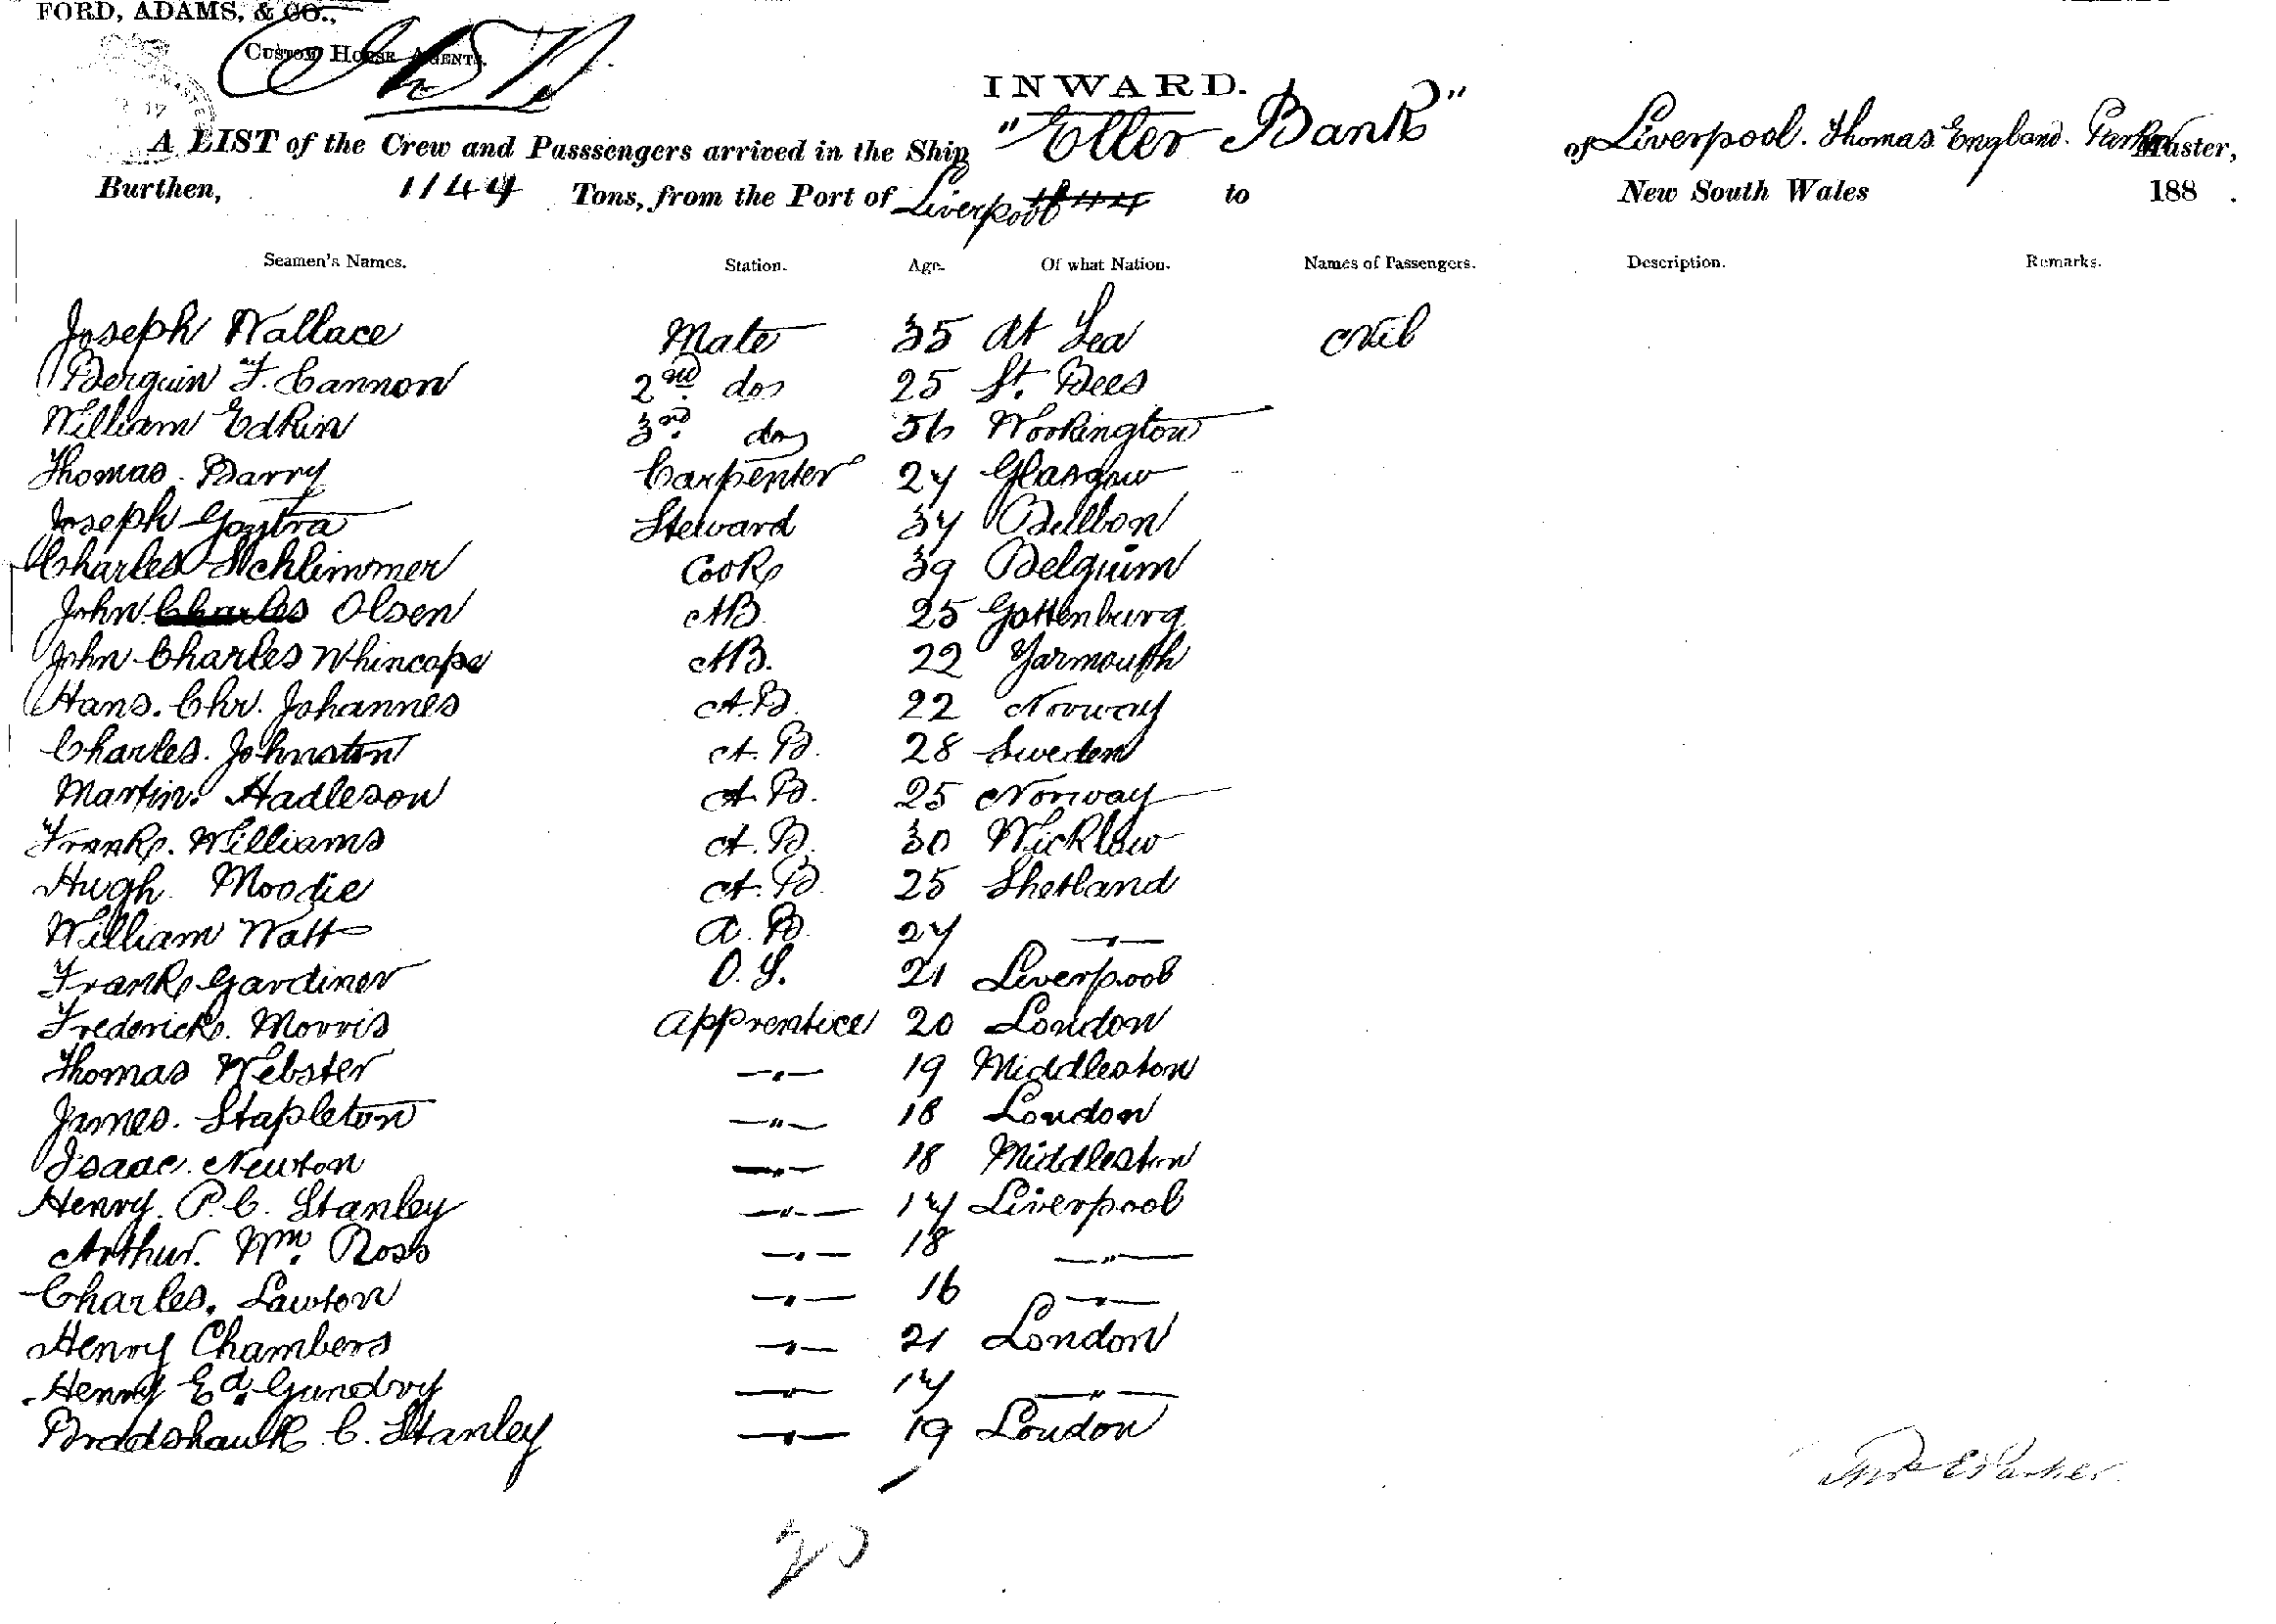 FORD, ADAMS, & CO.,
CUSTOM HOUSE AGENTS.
INWARD.
A LIST of the Crew and Passsengers arrived in the Ship "Eller Bank" of Liverpool. Thomas England. Parker Master,
Burthen, 1144 Tons, from the Port of Liverpool to New South Wales 188 .
Seamen's Names. Station. Age. Of what Nation. Names of Passengers. Description. Remarks.
Joseph Wallace Mate 35 At Sea Nil
Berguin F. Cannon 2nd do 25 St. Bees
William Edkin 3rd. do 56 Workington
Thomas. Barry Carpenter 27 Glasgow
Joseph Steward 37
Charles Schlimmer Cook 39 Belguim
John Charles Olsen AB. 25 Gottenburg
John Charles Whincope AB. 22 Yarmouth
Hans. Chr. Johannes A.B. 22 Norway
Charles. Johnston A.B. 28 Sweden
Martin. Hadleson A.B. 25 Norway
Frank. Williams A.B. 30 Wicklow
Hugh. Moodie A.B. 25 Shetland
William Watt A.B. 27 —"—
Frank Gardiner O.S. 21 Liverpool
Frederick. Morris Apprentice 20 London
Thomas Webster —"— 19 Middleston
James. Stapleton —"— 18 London
Isaac. Newton —"— 18 Middleston
Henry. P. C. Stanley —"— 17 Liverpool
Arthur. Wm. Ross —"— 18 —"—
Charles. Lawton —"— 16 —"—
Henry Chambers —"— 21 London
Henry Ed. Gundry —"— 17 —"—
Bradshawk C. Stanley —"— 19 London
Thos E Parker.